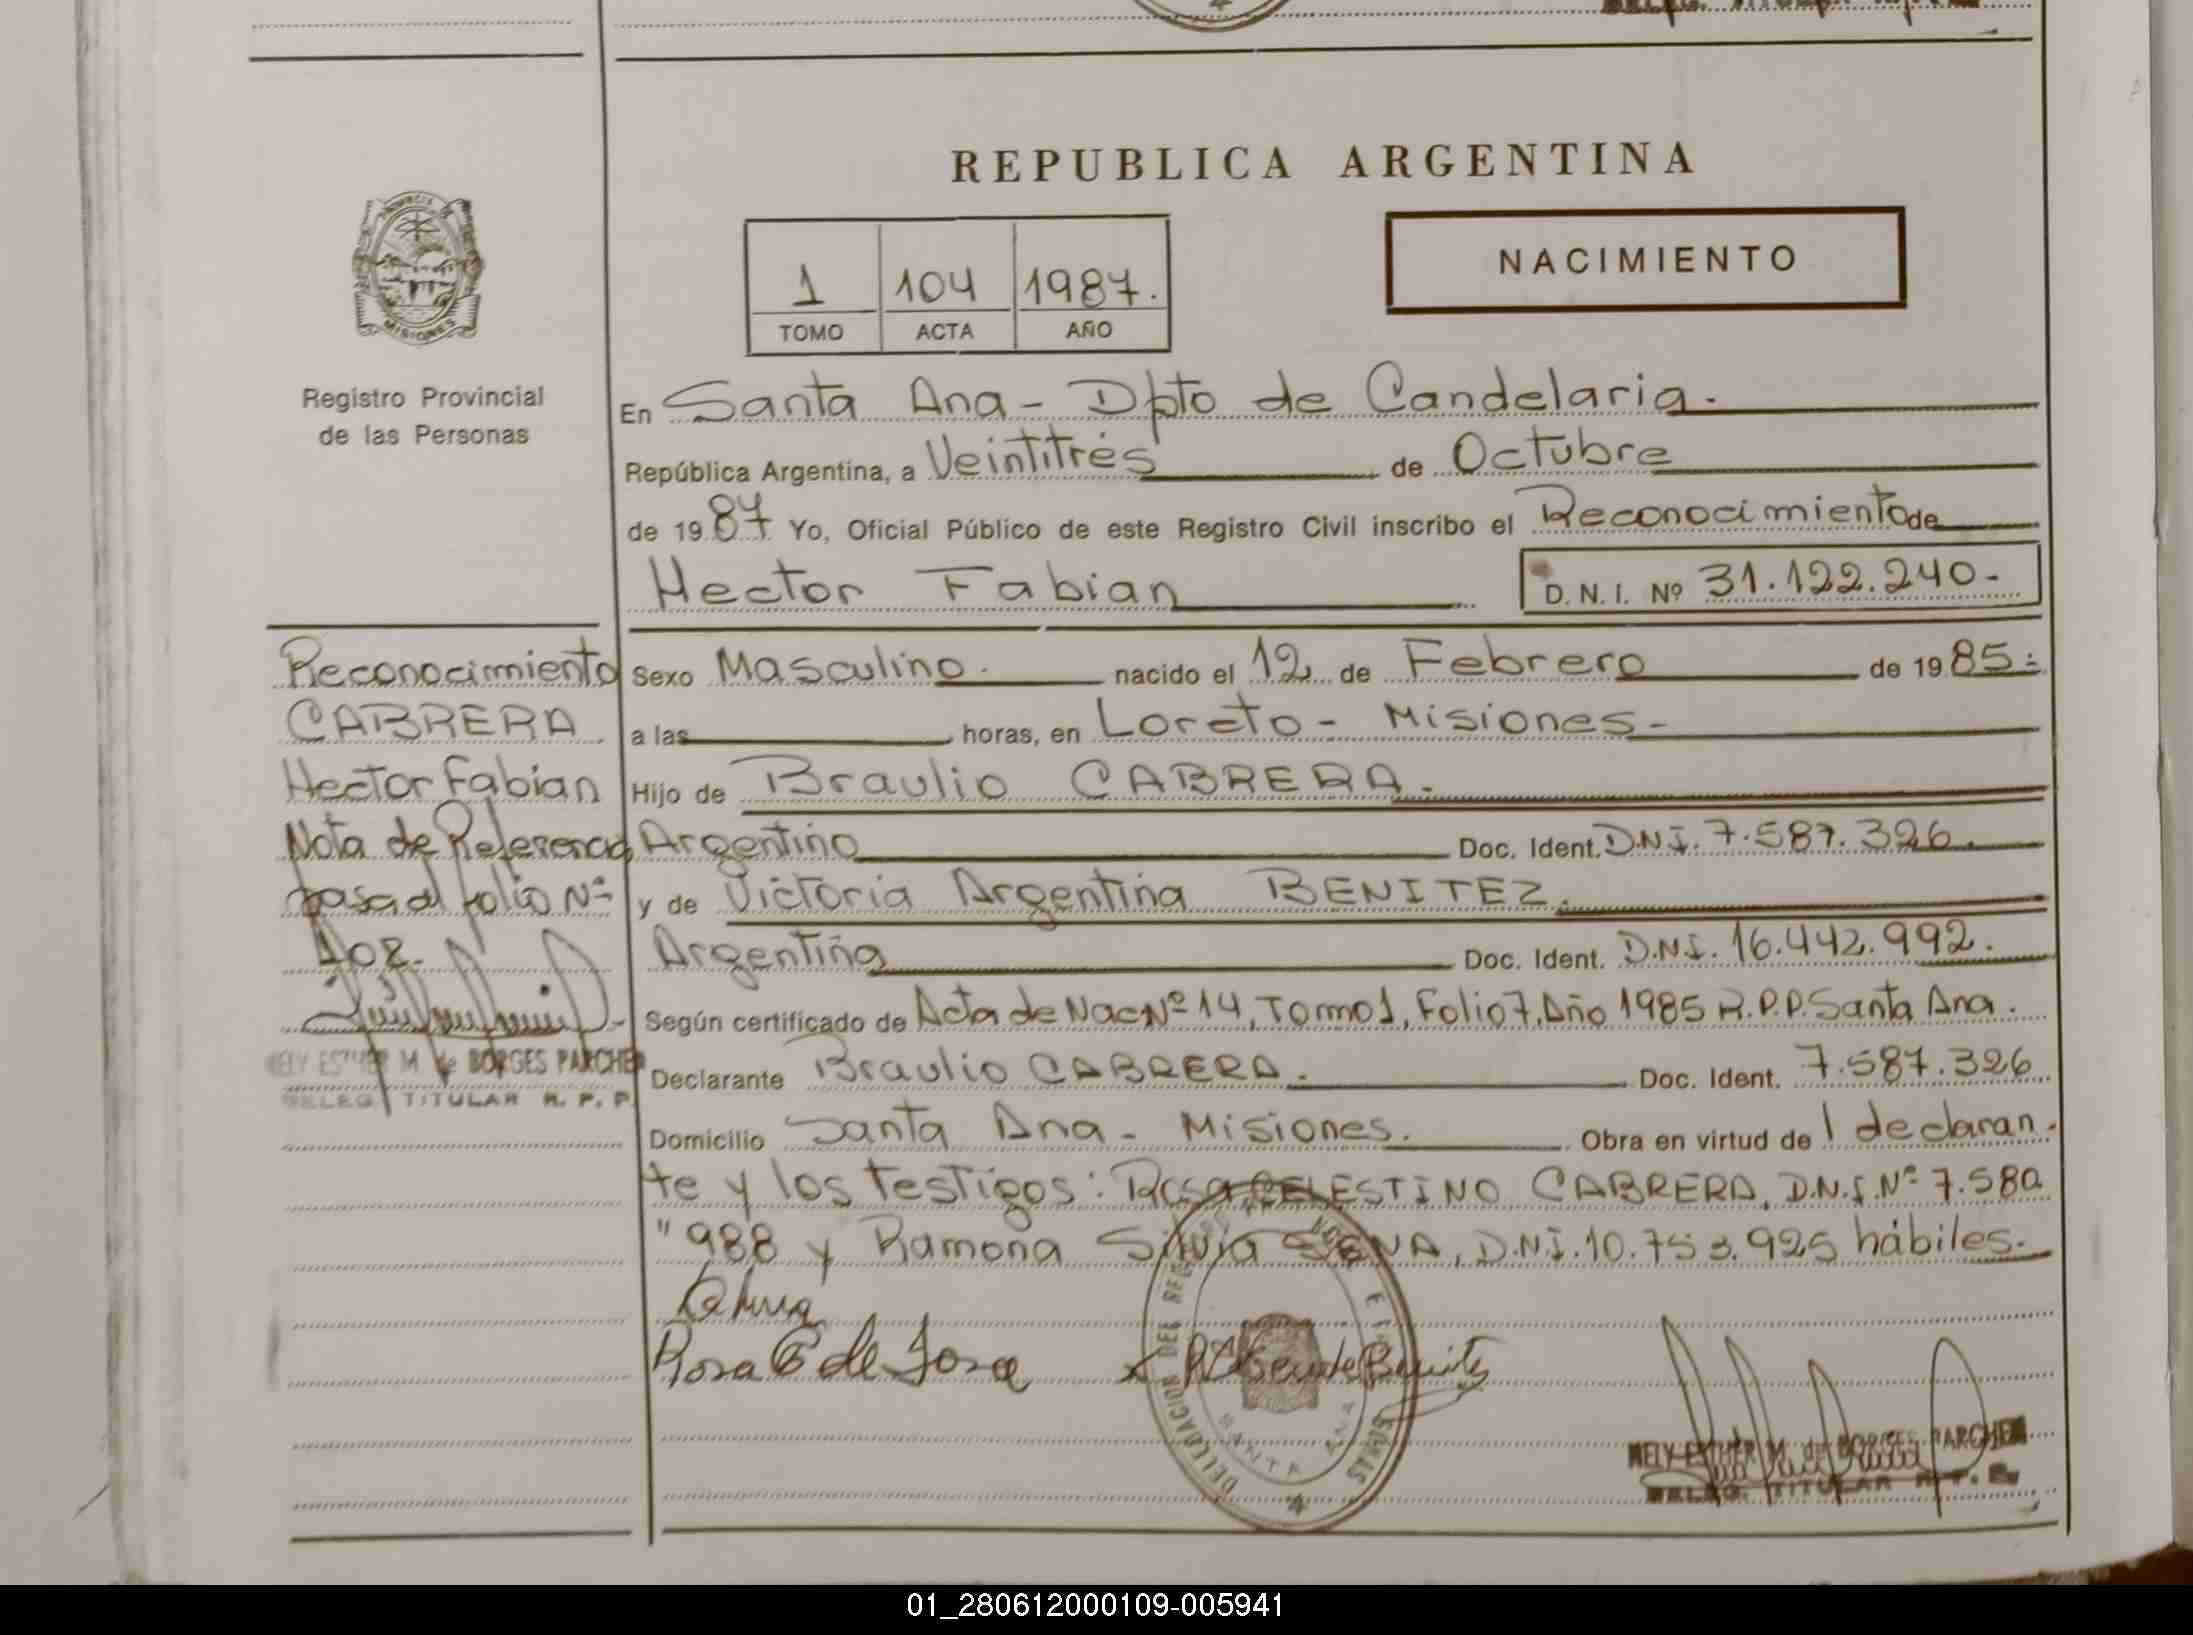 REPUBLICA ARGENTINA
NACIMIENTO
1 104 1987.
TOMO ACTA AÑO
PROVINCIA DE
MISIONES
Registro Provincial
de las Personas
En Santa Ana - Dpto de Candelaria.
República Argentina, a Veintitrés de Octubre
de 1987 Yo, Oficial Público de este Registro Civil inscribo el Reconocimiento de
Hector Fabian D.N.I. Nº 31.122.240.-
Reconocimiento
CABRERA
Hector Fabian
Nota de Referencia
pasa al folio Nº
102.
DELEG. TITULAR R. P. P.
Sexo Masculino. nacido el 12 de Febrero de 1985.-
a las horas, en Loreto - Misiones -
Hijo de Braulio CABRERA.
Argentino Doc. Ident. D.N.I. 7.587.326.
y de Victoria Argentina BENITEZ.
Argentina Doc. Ident. D.N.I. 16.442.992.
Según certificado de Acta de Nac Nº 14, Tomo 1, Folio 7, Año 1985 R.P.P. Santa Ana.
Declarante Braulio CABRERA. Doc. Ident. 7.587.326
Domicilio Santa Ana - Misiones. Obra en virtud de l declaran-
te y los testigos: Rosa CELESTINO CABRERA, D.N.I. Nº 7.580
"988 y Ramona Silvia D.N.I. 10.753.925 hábiles.-
Rosa C de Sosa
SANTA ANA
MELY ESTHER M. de BORGES PARCHEN
DELEG. TITULAR R. P. P.
01_280612000109-005941